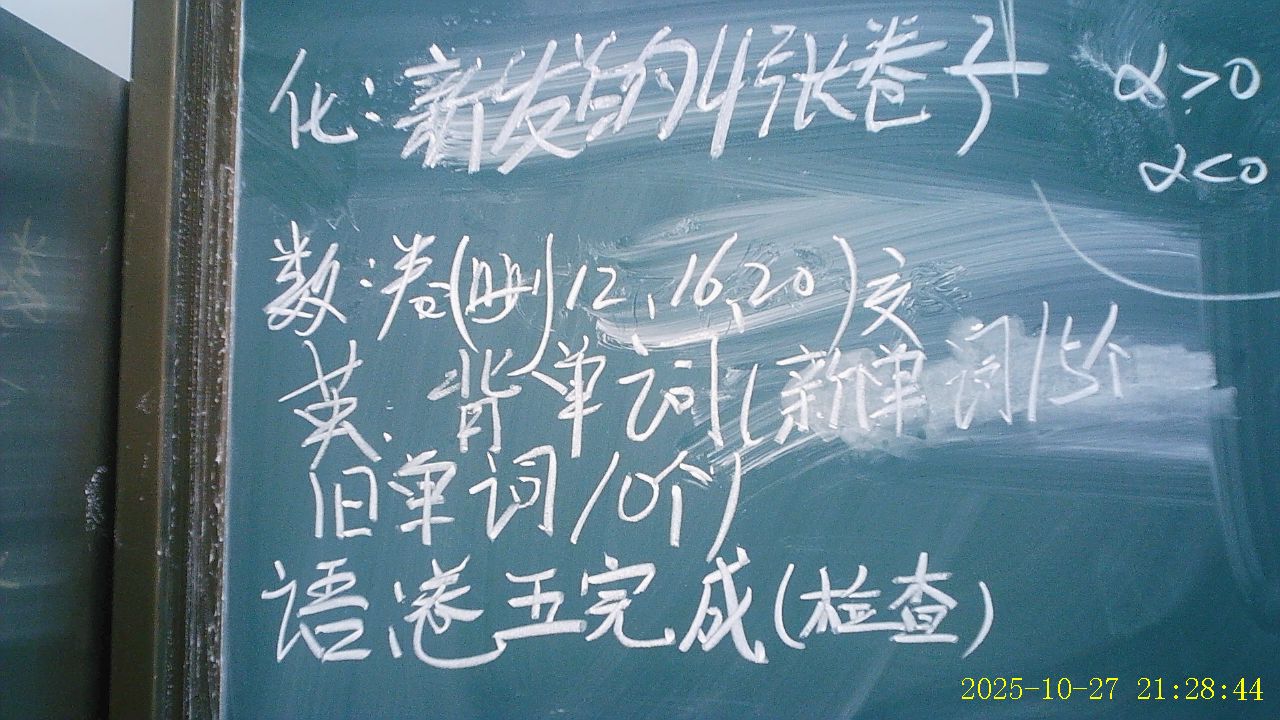 化:新发的4张卷子
α>0
α<0
数:卷(删12、16、20)交
英:背单词(新单词15个
旧单词10个)
语:卷五完成(检查)
2025-10-27 21:28:44